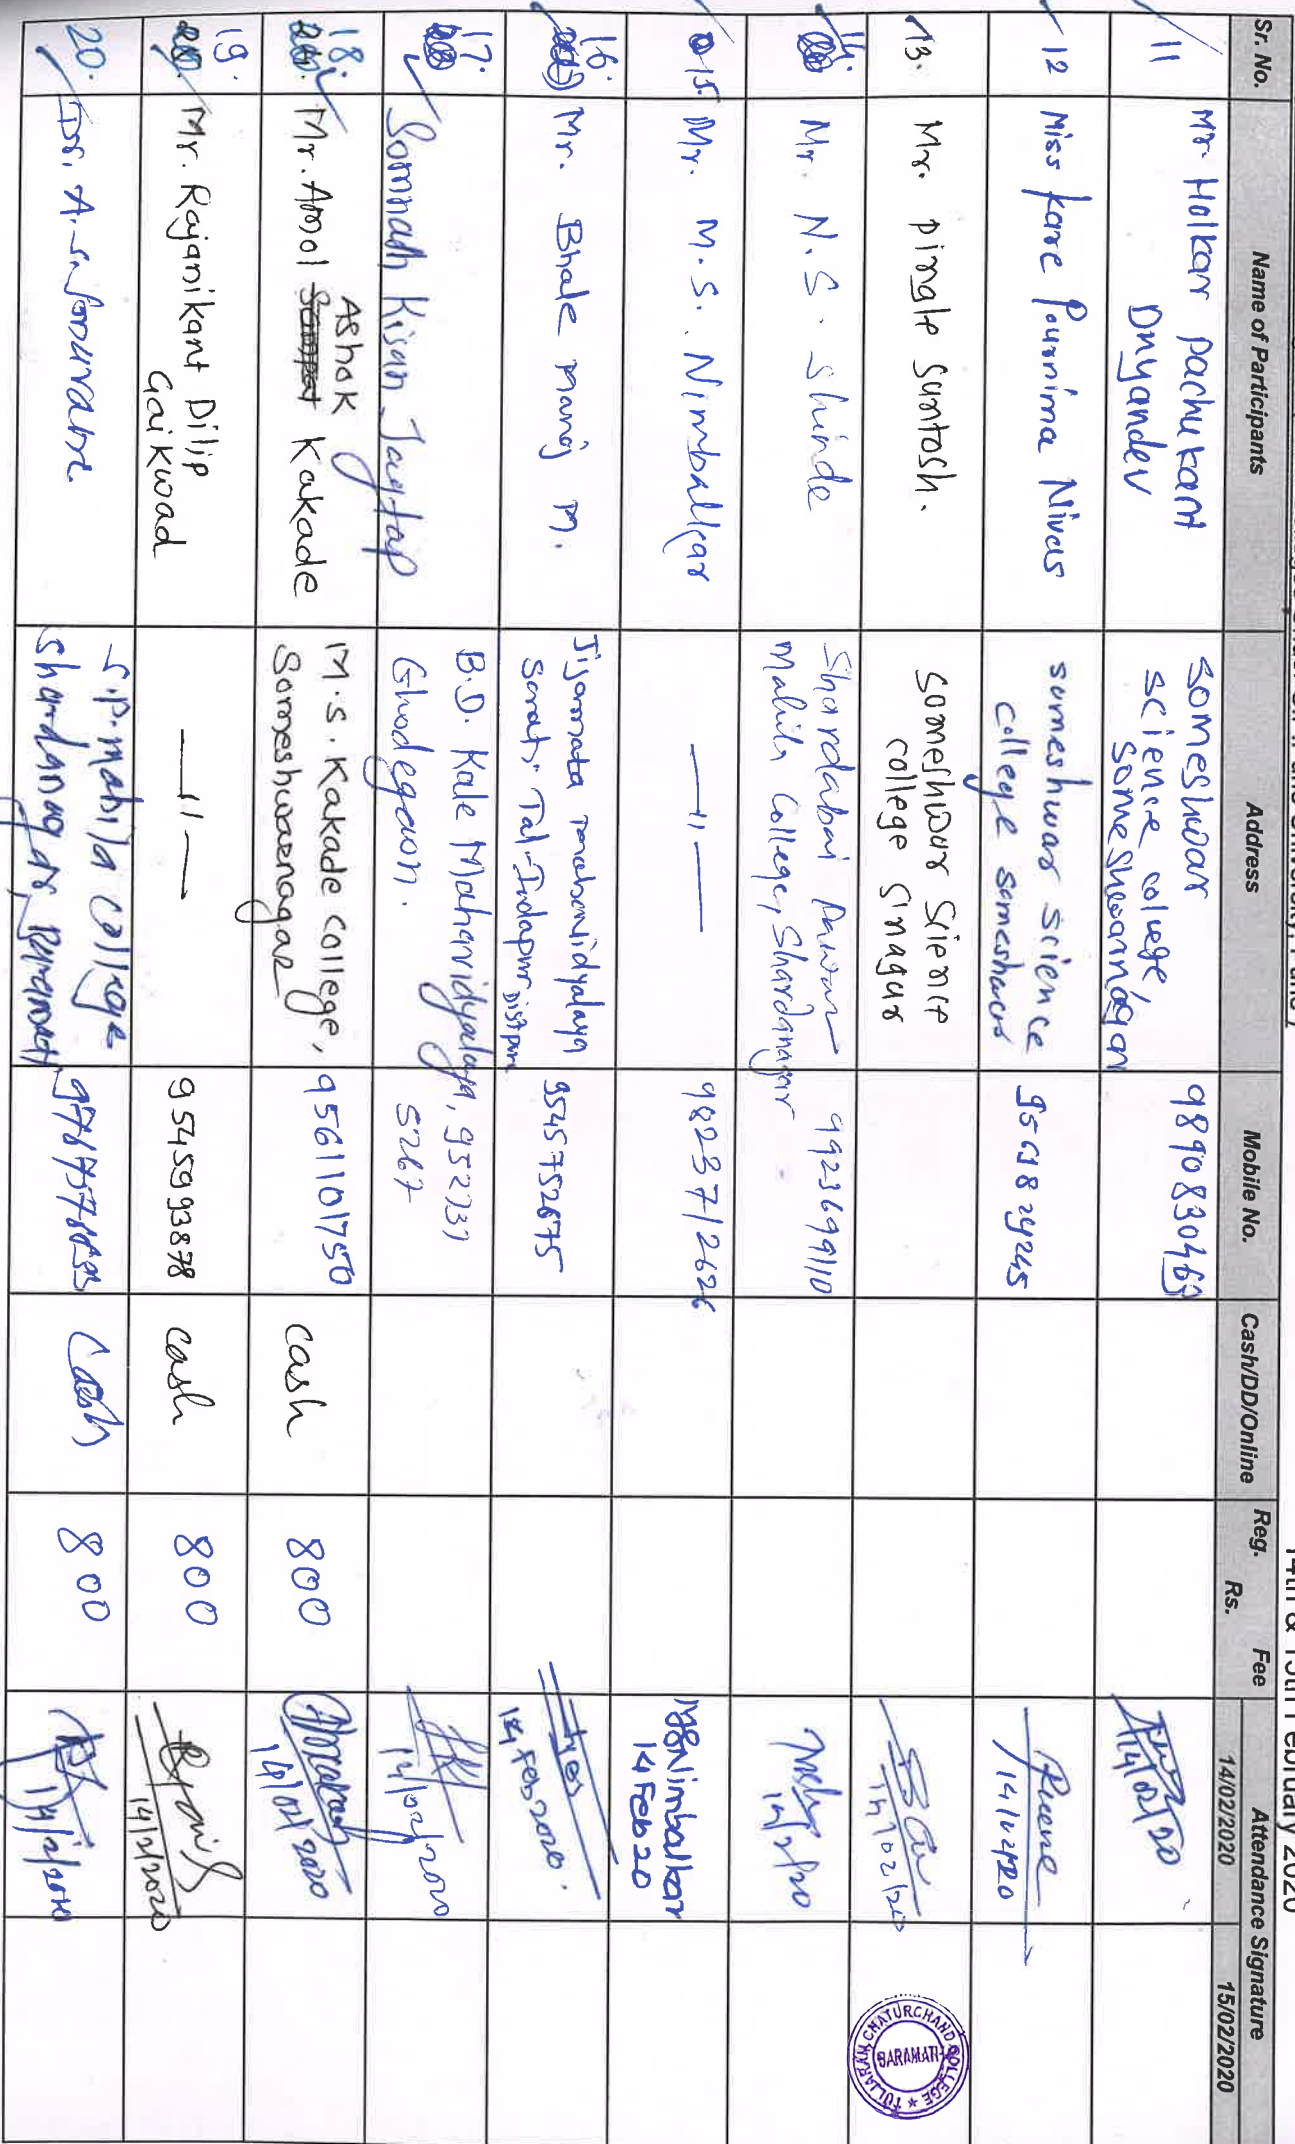 14th & 15th February 2020
Sr. No. Name of Participants Address Mobile No. Cash/DD/Online Reg. Fee Rs. Attendance Signature
14/02/2020 15/02/2020
11 Mr. Holkar Pachukant Dnyandev
someshwar science college, someshwarnagar
9890830463
14/02/20
12 Miss kare Pournima Nivas
someshwar science college someshwar
9561824245
13. Mr. pingale suntosh.
someshwur science college s.nagar
14/02/20
14. Mr. N.S. Shinde
Shardabai Pawar Mahila College, Shardanagar
9923699110
14/2/20
15. Mr. M.S. Nimbalkar
—〃—
9823712626
MSNimbalkar
14 Feb 20
16. Mr. Bhale Manoj M.
Jijamata mahavidyalaya
Tal-Indapur Dist pune
9545752675
14 Feb 2020.
17. Somnath Kisan Jagtap
B.D. Kale Mahavidyalaya, Ghodegaon.
952731
5267
14/02/2020
18. Mr. Amol Ashok Kakade
M.S. Kakade college, Someshwarnagar
9561101750
cash
800
14/02/2020
19. Mr. Rajanikant Dilip Gaikwad
—〃—
9545993878
cash
800
14/2/2020
20. Dr. A.S.
S.P. Mahila College shardanagar, Baramati
Cash
800
TULJARAM CHATURCHAND COLLEGE ★
BARAMATI